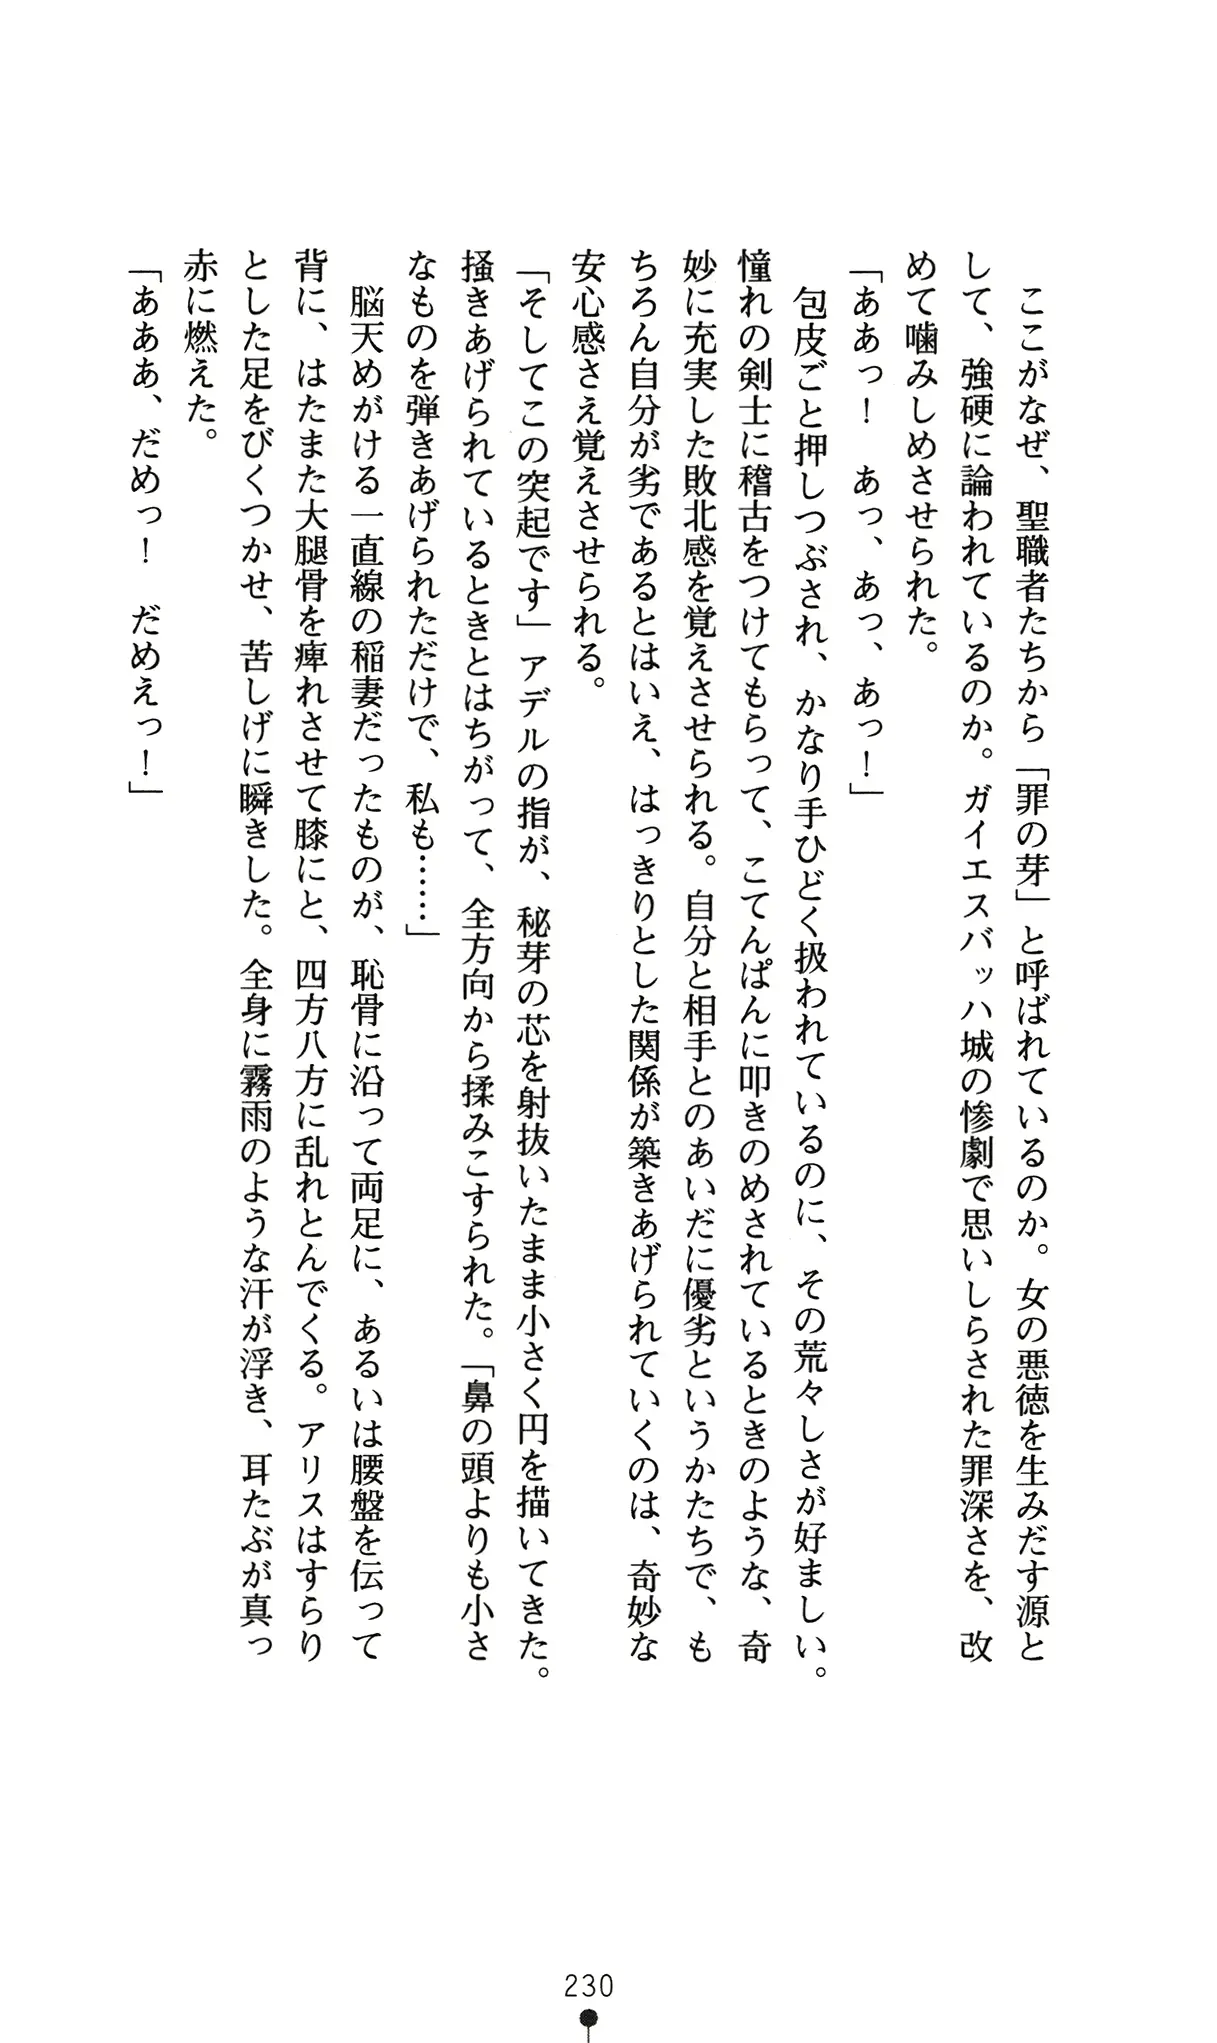 ここがなぜ、聖職者たちから「罪の芽」と呼ばれているのか。女の悪徳を生みだす源と
して、強硬に論われているのか。ガイエスバッハ城の惨劇で思いしらされた罪深さを、改
めて噛みしめさせられた。
「ああっ！　あっ、あっ、あっ！」
　包皮ごと押しつぶされ、かなり手ひどく扱われているのに、その荒々しさが好ましい。
憧れの剣士に稽古をつけてもらって、こてんぱんに叩きのめされているときのような、奇
妙に充実した敗北感を覚えさせられる。自分と相手とのあいだに優劣というかたちで、も
ちろん自分が劣であるとはいえ、はっきりとした関係が築きあげられていくのは、奇妙な
安心感さえ覚えさせられる。
「そしてこの突起です」アデルの指が、秘芽の芯を射抜いたまま小さく円を描いてきた。
掻きあげられているときとはちがって、全方向から揉みこすられた。「鼻の頭よりも小さ
なものを弾きあげられただけで、私も……」
　脳天めがける一直線の稲妻だったものが、恥骨に沿って両足に、あるいは腰盤を伝って
背に、はたまた大腿骨を痺れさせて膝にと、四方八方に乱れとんでくる。アリスはすらり
とした足をびくつかせ、苦しげに瞬きした。全身に霧雨のような汗が浮き、耳たぶが真っ
赤に燃えた。
「あああ、だめっ！　だめえっ！」
230